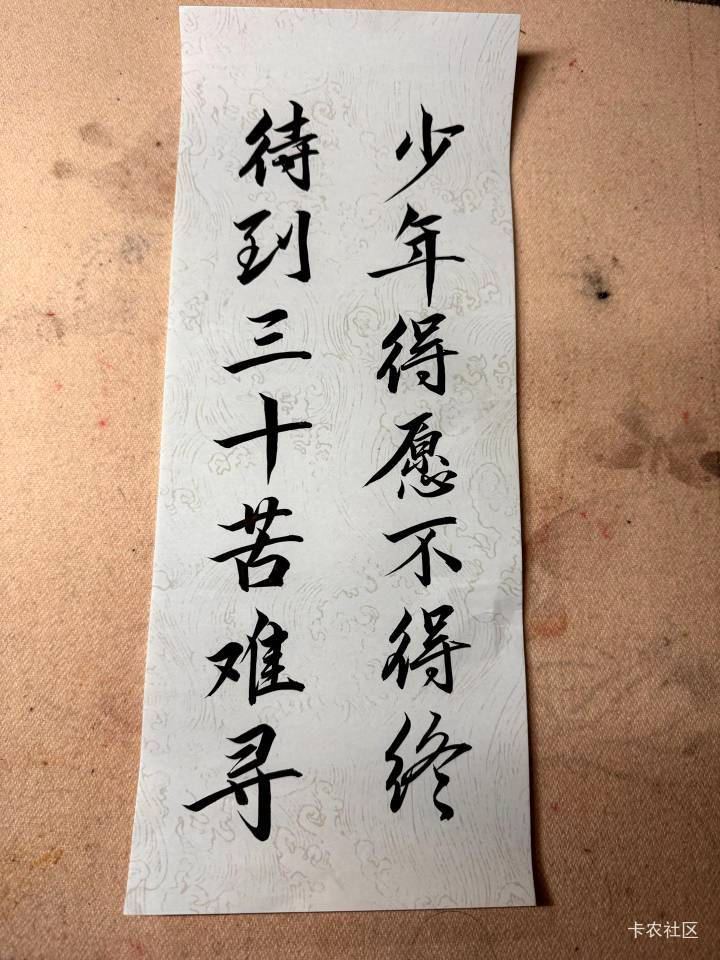 少年得愿不得终
待到三十苦难寻
卡农社区